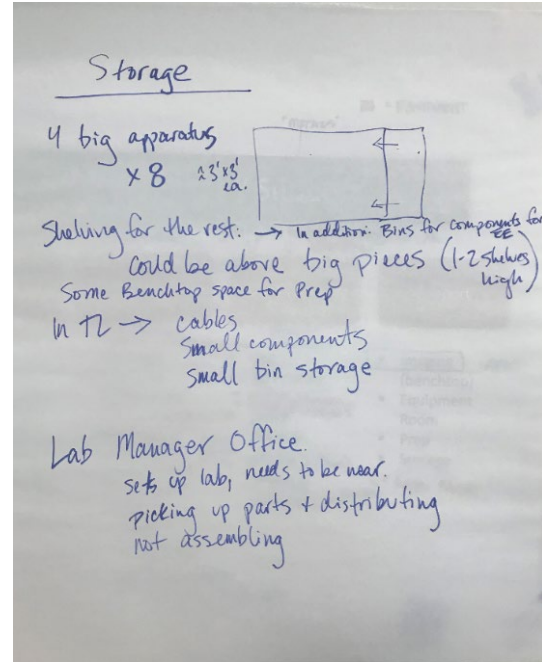 Storage
4 big apparatus
x 8 ≈3'x3' ea.
Shelving for the rest: → In addition: Bins for components for EE
could be above big pieces (1-2 shelves high)
Some Benchtop space for Prep
In → cables
small components
small bin storage
Lab Manager Office.
sets up lab, needs to be near.
picking up parts + distributing
not assembling